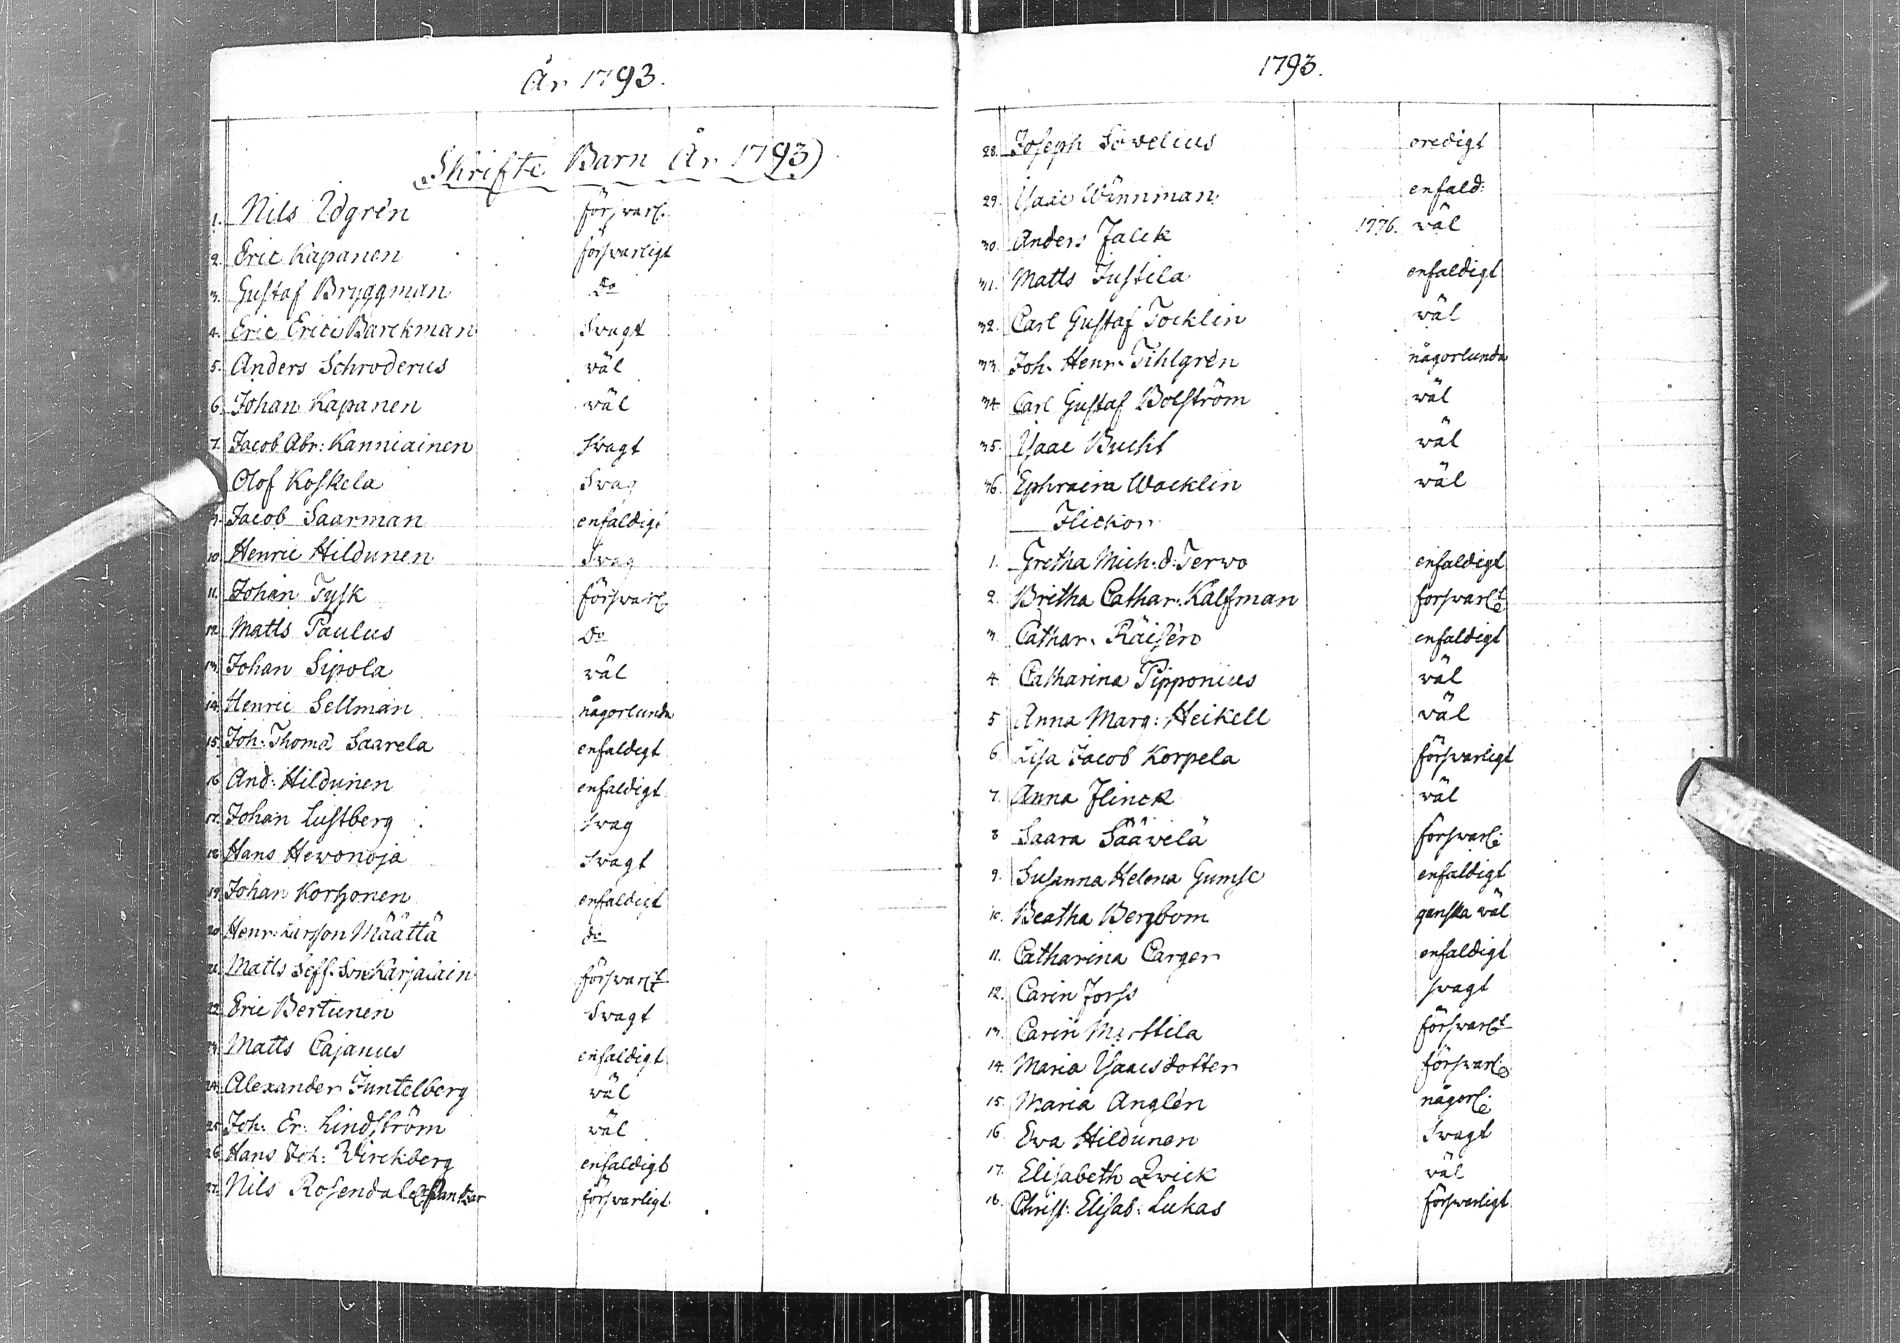 År 1793.
Skrifte Barn År 1793
1. Nils Udgrén förswarl.
2. Eric Kapanen förswarligt
3. Gustaf Bryggman Do
4. Eric Ericc Barckman Swagt
5. Anders Schroderus wäl
6. Johan Kapanen wäl
7. Jacob Abr: Kanniainen swagt
Olof Koskela Swag
9. Jacob Saarman enfaldigt
10. Henric Hildunen Swag
11. Johan Tysk förswarl.
12. Matts Paulus Do
13. Johan Sipola wäl
14. Henric Sellman någorlunda
15. Joh: Thoma Saarela enfaldigt
16 And: Hildunen enfaldigt
17. Johan Lustberg swag
18 Hans Hewonoja swagt
19 Johan Korhonen enfaldigt
20 Henr: Larsson Määttä do
21. Matts Seff: Son Karjalain förswarl:t
22 Eric Bertunen Swagt
23. Matts Cajanus enfaldigt
24. Alexander Juntelberg wäl
25 Joh: Er: Lindström wäl
26 Hans Joh: Wirckberg enfaldigt
27. Nils Rosendal Pantzar förswarligt
1793.
28. Joseph Sowelius oredigt
29. Isaac Wänman enfald:
30. Anders Falck 1776. wäl
31. Matts Justila enfaldigt
32. Carl Gustaf Tocklin wäl
33. Joh. Henr. Tihlgrén någorlunda
34 Carl Gustaf Bolström wäl
35. Isaac Bucht wäl
36. Ephraim Wacklin wäl
Flickor
1. Gretha Mich: d: Terwo enfaldigt
2. Britha Cathar: Kalfman forswarl:t
3. Cathar. Räisén enfaldigt
4. Catharina Pipponius wäl
5 Anna Marg: Heikell wäl
6 Lisa Jacob Korpela förswarligt
7. Anna Flinck wäl
8 Saara Säävelä förswarl:
9. Susanna Helena Gumse enfaldigt
10. Beatha Bergbom ganska wäl
11. Catharina Carger enfaldigt
12. Carin Forss swagt
13. Carin Marttila förswarl:t
14. Maria Isaacsdotter förswarl:
15. Maria Anglén någorl:
16 Ewa Hildunen Swagt
17. Elisabeth Qwick wäl
18. Christ: Elisab: Lukas förswarligt